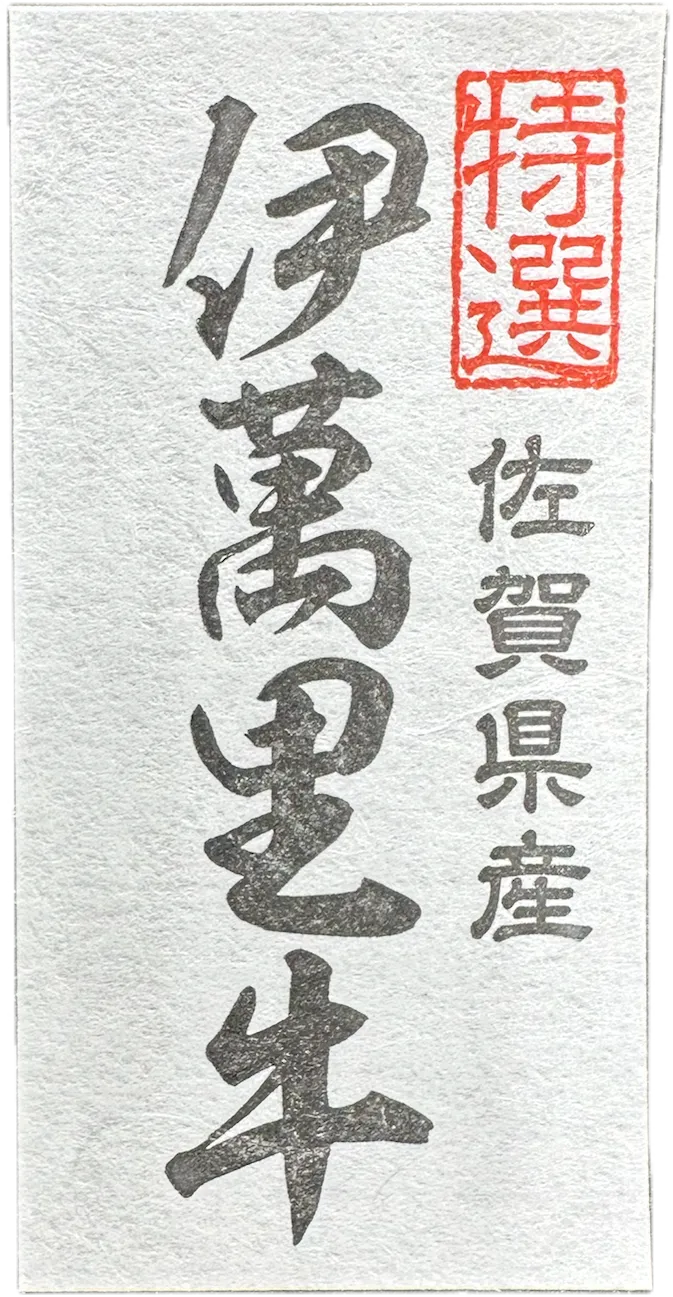 特選
佐賀県産
伊萬里牛